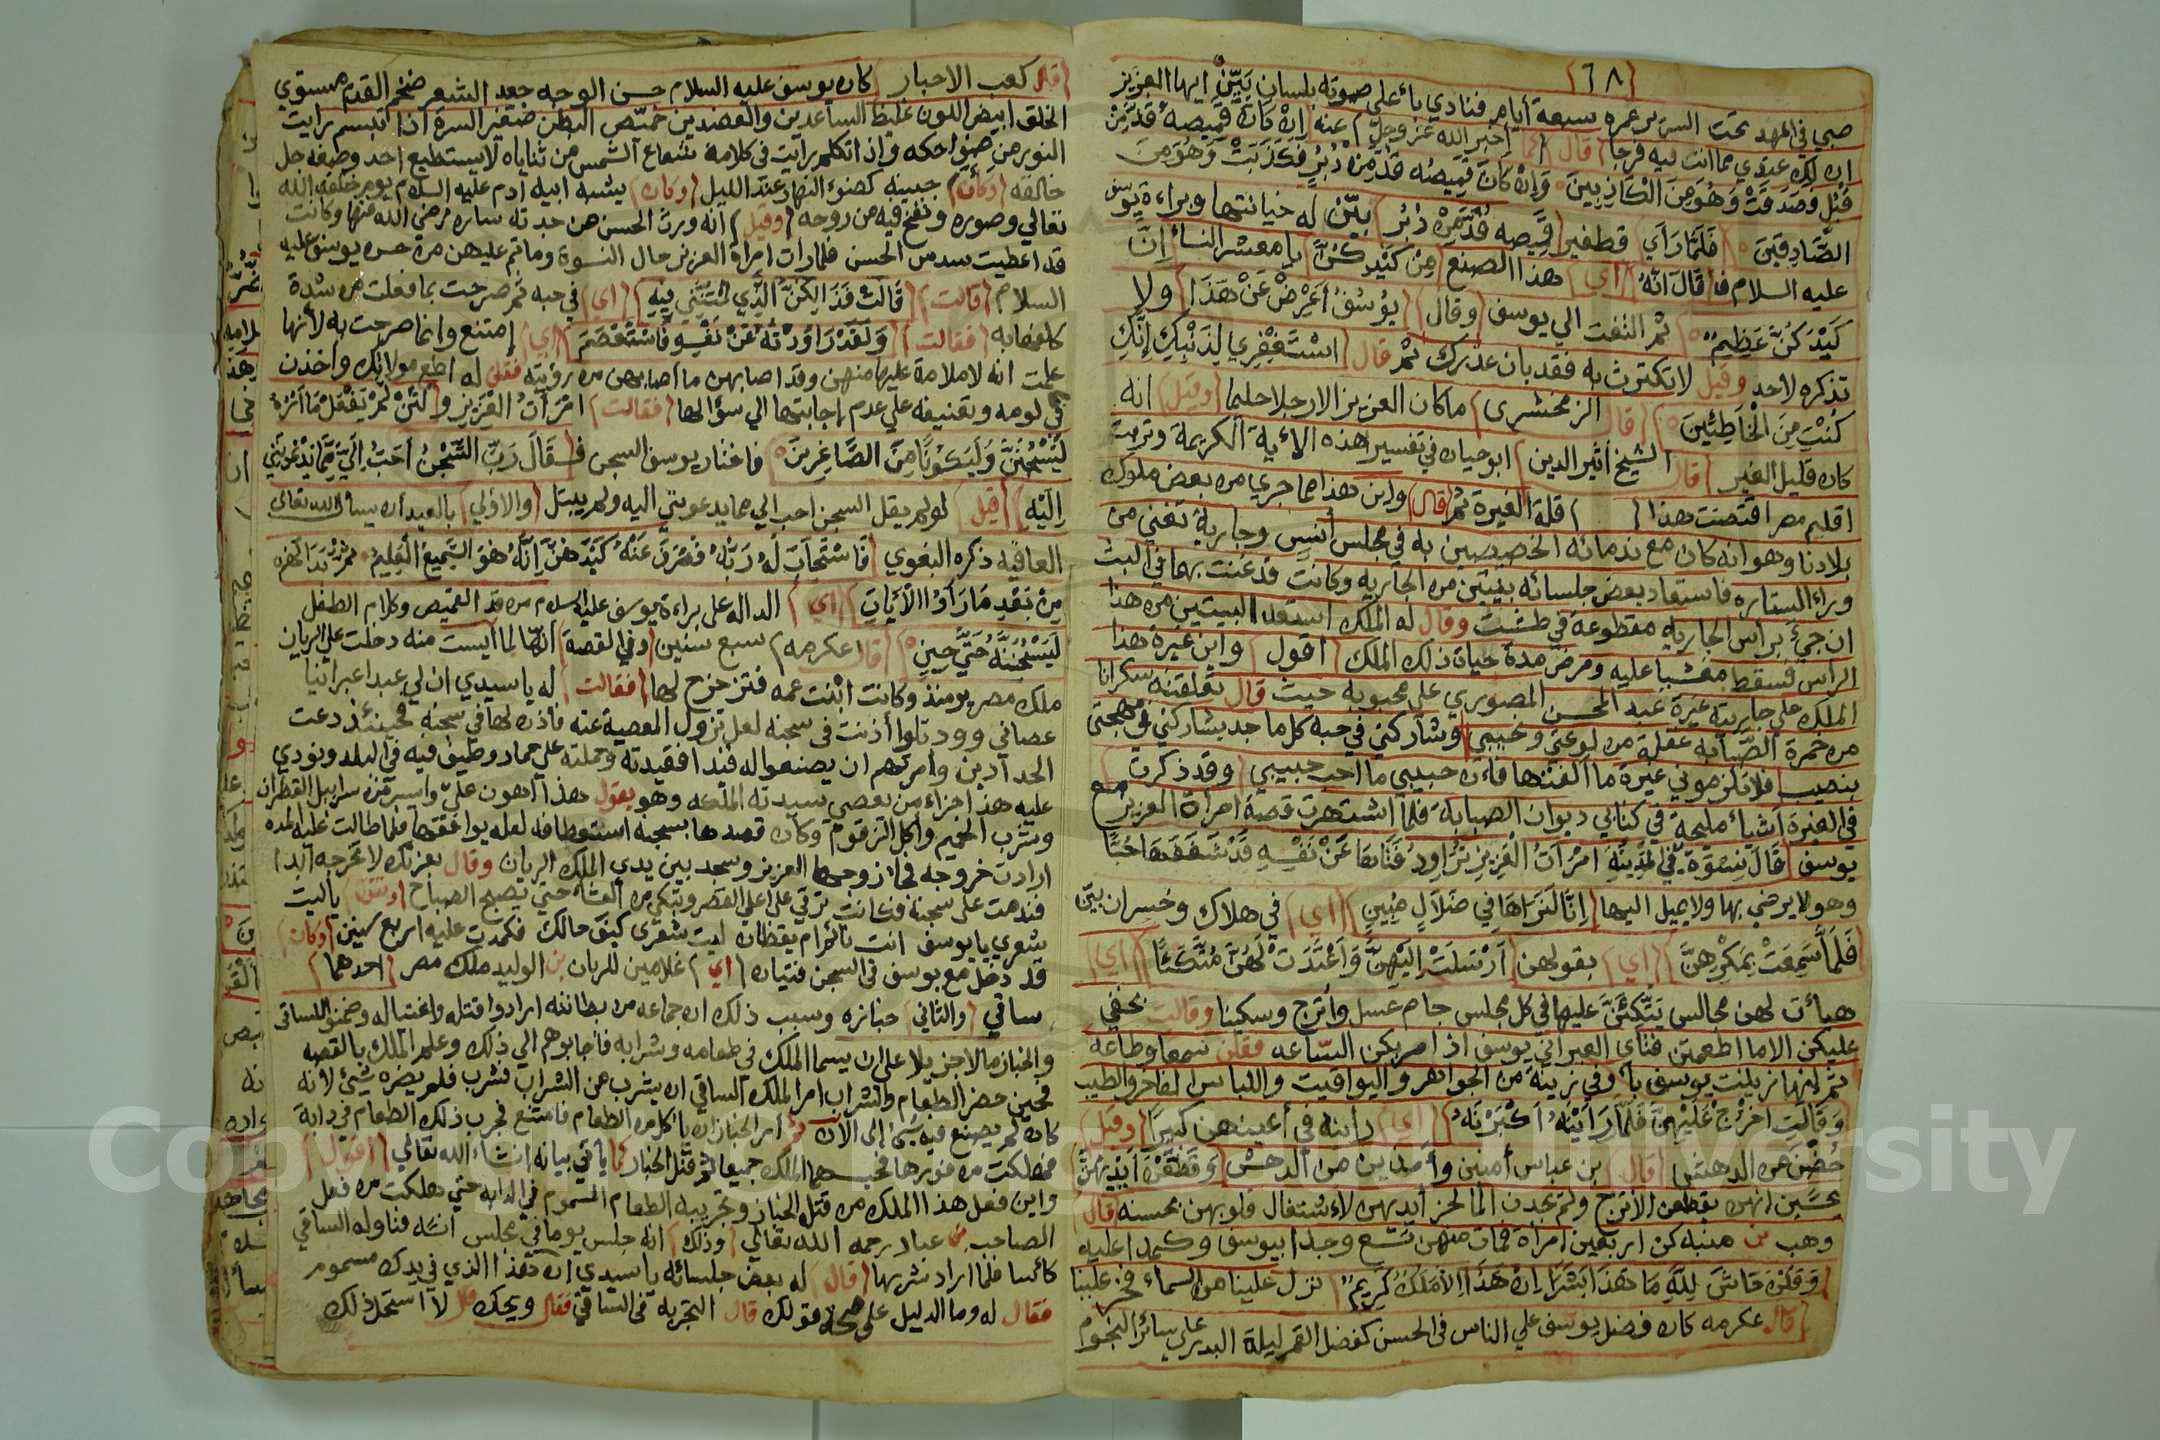 ٦٨
صبي في المهد تحت السرير عمره سبعة أيام فنادي بأعلى صوته بلسان بَيِّنٍ ايها العزيز
ان لك عندي مما انت فيه فرجا قال كما اخبر الله عز وجل عنه إِنْ كَانَ قَمِيصُهُ قُدَّ مِنْ
قُبُلٍ فَصَدَقَتْ وَهُوَ مِنَ الْكَاذِبِينَ وَإِنْ كَانَ قَمِيصُهُ قُدَّ مِنْ دُبُرٍ فَكَذَبَتْ وَهُوَ مِنَ
الصَّادِقِينَ فَلَمَّا رَأَي قطفير قَمِيصَهُ قُدَّ مِنْ دُبُرٍ بيّن له خيانتها وبراءة يوسف
عليه السلام فا قَالَ انَّهُ اي هذا الصنع مِنْ كَيْدِكُنَّ يا معشر النسأ إِنَّ
كَيْدَكُنَّ عَظِيمٌ ثم التفت الي يوسف وقال يُوسُفُ أَعْرِضْ عَنْ هَذَا ولا
تذكره لاحد وقيل لا تكترث به فقد بان عذرك ثم قال اسْتَغْفِرِي لِذَنْبِكِ إِنَّكِ
كُنْتِ مِنَ الْخَاطِئِينَ قال الزمخشري ما كان العزيز الا رجلا حليما وقيل انه
كان قليل الغير قال الشيخ أثير الدين ابو حيان في تفسير هذه الاية الكريمة وتربت
اقليم مصر اقتضت هذا قلة الغيرة ثم قال واين هذا مما جري من بعض ملوك
بلادنا وهو انه كان مع ندمائه الخصيصين به في مجلس أنس وجارية تغني من
وراء الستاره فاستعاد بعض جلسائه بيتين من الجاريه وكانت قد غنت بهما في البث
ان جيئ براس الجاريه مقطوعة في طشت وقال له الملك استعد البيتين من هذا
الراس فسقط مغشيا عليه ومرض مدة حياة ذلك الملك اقول واين غيرة هذا
الملك علي جاريته غيرة عبد المحسن الصوري علي محبوبه حيث قال تعلقته سكرانا
من خمرة الصبابه غفلة من لوعتي ونحيبي وشاركني في حبه كل ما جد يشاركني في مهجتي
بنصيب فلا تلزموني غيرة ما الفتها فان حبيبي ما احب حبيبي وقد ذكرت
في الغيرة أشياء مليحة في كتابي ديوان الصبابة فلما اشتهرت قصة امراة العزيز مع
يوسف قَالَ نِسْوَةٌ فِي الْمَدِينَةِ امْرَأَتُ الْعَزِيزِ تُرَاوِدُ فَتَاهَا عَنْ نَفْسِهِ قَدْ شَغَفَهَا حُبًّا
وهو لا يرضي بها ولا يميل اليها إِنَّا لَنَرَاهَا فِي ضَلَالٍ مُبِينٍ اي في هلاك وخسران بيّن
فَلَمَّا سَمِعَتْ بِمَكْرِهِنَّ اي بقولهن أَرْسَلَتْ إِلَيْهِنَّ وَأَعْتَدَتْ لَهُنَّ مُتَّكَئًا اي
هيأت لهن مجالس يَتَّكِئْنَ عليها في كل مجلس جام عسل وأترج وسكينا وقالت بحقي
عليكن الا ما اطعمتن فتاي العبراني يوسف اذ امر بكن الساعه فقلن سمعا وطاعه
ثم انها زينت يوسف بأوفي زينة من الجواهر واليواقيت واللباس الفاخر والطيب
وَقَالَتِ اخْرُجْ عَلَيْهِنَّ فَلَمَّا رَأَيْنَهُ أَكْبَرْنَهُ اي رأينه في أعينهن كبيرا وقيل
حضن من الدهش قال بن عباس أمنين وأمذين من الدهش وَقَطَّعْنَ أَيْدِيَهُنَّ
يحسبن انهن يقطعن الأترج ولم يجدن الما لحز أيديهن لاشتغال قلوبهن بحسنه قال
وهب بن منبه كن اربعين امرأة فمات منهن تسع وجدا بيوسف وكمدا عليه
وَقُلْنَ حَاشَ لِلَّهِ مَا هَذَا بَشَرًا إِنْ هَذَا إِلَّا مَلَكٌ كَرِيمٌ نزل علينا من السماء فخر علينا
قال عكرمه كان فضل يوسف علي الناس في الحسن كفضل القمر ليلة البدر علي سائر النجوم
قال كعب الاحبار كان يوسف عليه السلام حسن الوجه جعد الشعر ضخم القدم مستوي
الخلق ابيض اللون غليظ الساعدين والعضدين خميص البطن صغير السرة اذا تبسم رايت
النور من ضواحكه واذا تكلم رايت في كلامه شعاع الشمس من ثناياه لا يستطيع احد وصفه جل
خالقه وكان جبينه كضوء النهار عند الليل وكان يشبه ابيه ادم عليه السلام يوم خلقه الله
تعالي وصوره ونفخ فيه من روحه وقيل انه ورث الحسن من جدته ساره رضي الله عنها وكانت
قد اعطيت سدس الحسن فلما رات امراة العزيز حال النسوة وما تم عليهن من حب يوسف عليه
السلام قالت قَالَتْ فَذَلِكُنَّ الَّذِي لُمْتُنَّنِي فِيهِ اي في حبه ثم صرحت بما فعلت من شدة
كلفها به فقالت وَلَقَدْ رَاوَدْتُهُ عَنْ نَفْسِهِ فَاسْتَعْصَمَ اي إمتنع وانما صرحت به لأنها
علمت انه لا ملامة عليها منهن وقد اصابهن ما اصابهن من رؤيته فقلن له اطع مولاتك واخذن
في لومه وتعنيفه علي عدم إجابتها الي سؤالها فقالت امْرَأَتُ الْعَزِيزِ وَلَئِنْ لَمْ يَفْعَلْ مَا آمُرُهُ
لَيُسْجَنَنَّ وَلَيَكُونًا مِنَ الصَّاغِرِينَ فاختار يوسف السجن فَقَالَ رَبِّ السِّجْنُ أَحَبُّ إِلَيَّ مِمَّا يَدْعُونَنِي
إِلَيْهِ قيل لو لم يقل السجن احب الي مما يدعونني اليه ولم يبتل والاولي بالعبد ان يسأل الله تعالي
العافيه ذكره البغوي فَاسْتَجَابَ لَهُ رَبُّهُ فَصَرَفَ عَنْهُ كَيْدَهُنَّ إِنَّهُ هُوَ السَّمِيعُ الْعَلِيمُ ثُمَّ بَدَا لَهُمْ
مِنْ بَعْدِ مَا رَأَوُا الْآيَاتِ اي الداله علي براءة يوسف عليه السلام من قد القميص وكلام الطفل
لَيَسْجُنُنَّهُ حَتَّى حِينٍ قال عكرمه سبع سنين وفي القصة أنها لما أيست منه دخلت علي الريان
ملك مصر يومئذ وكانت ابنت عمه فتزحزح لها فقالت له يا سيدي ان لي عبدا عبرانيا
عصاني وودت لو أذنت في سجنه لعل تزول المعصية عنه فأذن لها في سجنه فحينئذ دعت
الحدادين وأمرتهم ان يصنعوا له قيدا فقيدته وحملته علي حمار وطيف فيه في البلد ونودي
عليه هذا جزاء من يعصي سيدته الملكه وهو يقول هذا اهون علي من سرابيل القطران
وشرب الحميم وأكل الزقوم وكان قصدها بسجنه استعطافه لعله يوافقها فلما طالت عليه المده
ارادت خروجه فجاء زوجها العزيز وسجد بين يدي الملك الريان وقال بعزتك لا تخرجه ابدا
فندمت علي سجنه فكانت ترقي علي اعلي القصر وتبكي من العشاء حتي تصبح الصباح وتقول يا ليت
شعري يا يوسف انت نائم ام يقظان ليت شعري كيف حالك فمكثت عليه اربع سنين وكان
قد دخل مع يوسف في السجن فتيان اي غلامين للريان بن الوليد ملك مصر احدهما
ساقي والثاني خبازه وسبب ذلك ان جماعه من بطانته ارادوا قتله واغتياله وضمنوا للساقي
والخباز مالا جزيلا علي ان يسما الملك في طعامه وشرابه فأجابوهم الي ذلك وعلم الملك بالقصه
فحين حضر الطعام والشراب امر الملك الساقي ان يشرب من الشراب فشرب فلم يضره شيئ لأنه
كان لم يصنع فيه شئ إلى الآن ثم أمر الخباز ان يأكل من الطعام فامتنع فجرب ذلك الطعام في دابة
فهلكت من فورها فحبسهما الملك جميعا ثم قتل الخباز كما يأتي بيانه انشاء الله تعالي اقول
واين فعل هذا الملك من قتل الخباز وتجريبه الطعام المسموم في الدابه حتي هلكت من فعل
الصاحب بن عباد رحمه الله تعالي وذلك انه جلس يوما في مجلس أنسه فناوله الساقي
كأسا فلما اراد شربها قال له بعض جلسائه يا سيدي ان هذا الذي في يدك مسموم
فقال له وما الدليل علي صحة قولك قال التجربه في الساقي فقال ويحك لا استحل ذلك